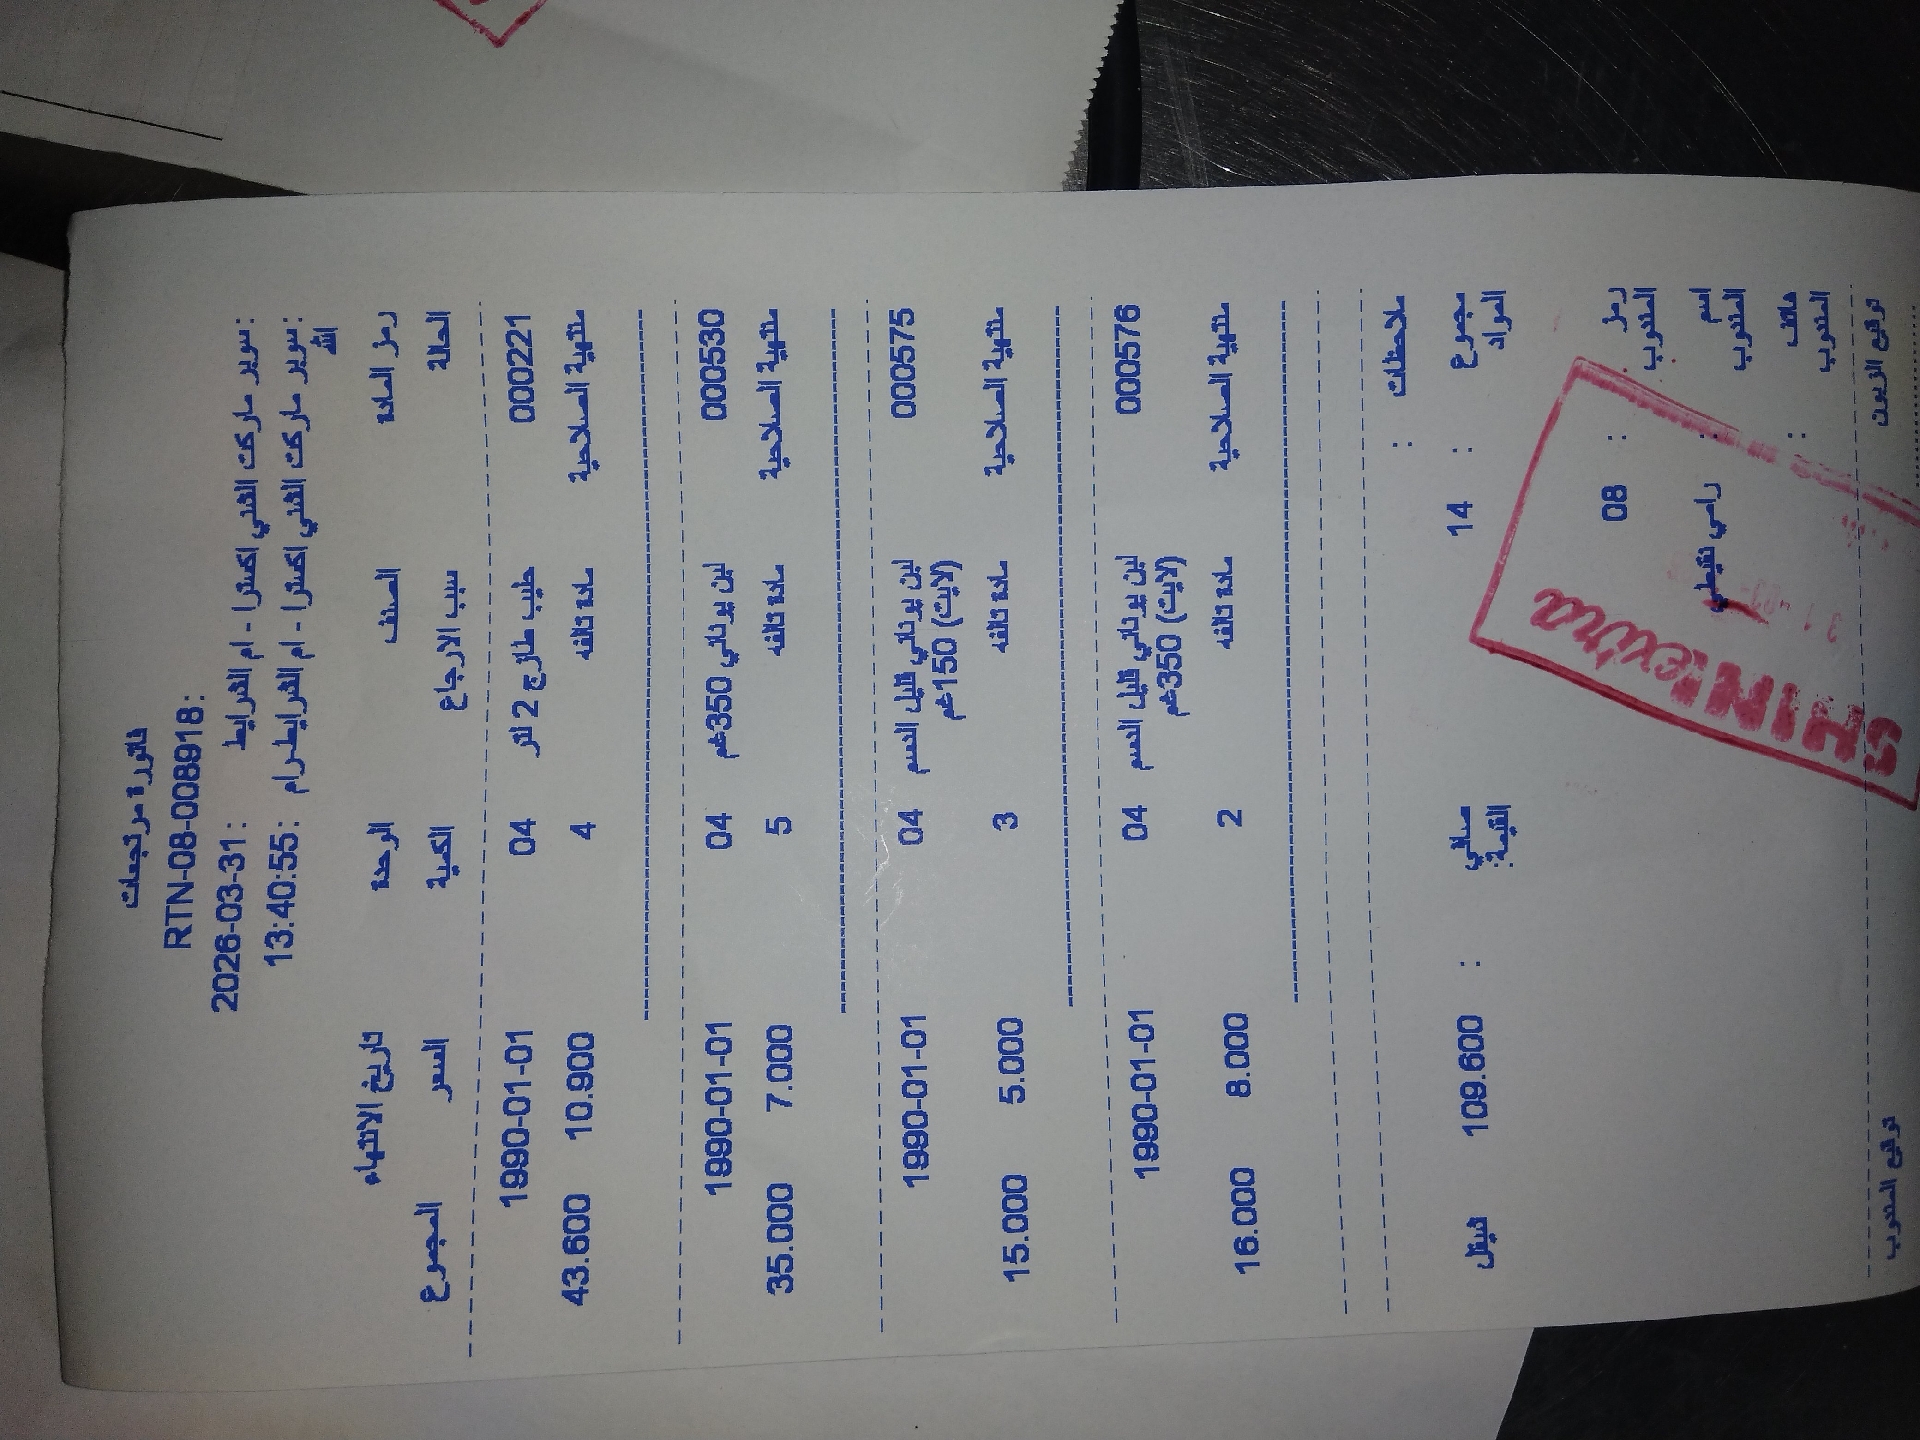 فاتورة مرتجعات
RTN-08-008918:
:سوبر ماركت الشني اكسترا - ام الشرايط 2026-03-31:
:سوبر ماركت الشني اكسترا - ام الشرايط-رام 13:40:55:
الله
رمز المادة الصنف الوحدة تاريخ الانتهاء
الحالة سبب الارجاع الكمية السعر المجموع
000221 حليب طازج 2 لتر 04 1990-01-01
منتهية الصلاحية مادة تالفه 4 10.900 43.600
000530 لبن يوناني 350غم 04 1990-01-01
منتهية الصلاحية مادة تالفه 5 7.000 35.000
000575 لبن يوناني قليل الدسم 04 1990-01-01
(لايت) 150غم
منتهية الصلاحية مادة تالفه 3 5.000 15.000
000576 لبن يوناني قليل الدسم 04 1990-01-01
(لايت) 350غم
منتهية الصلاحية مادة تالفه 2 8.000 16.000
ملاحظات :
مجموع المواد : 14 صافي القيمة: : 109.600 شيقل
رمز المندوب : 08
اسم المندوب : رامي
هاتف المندوب :
SHINI extra
توقيع الزبون توقيع المندوب